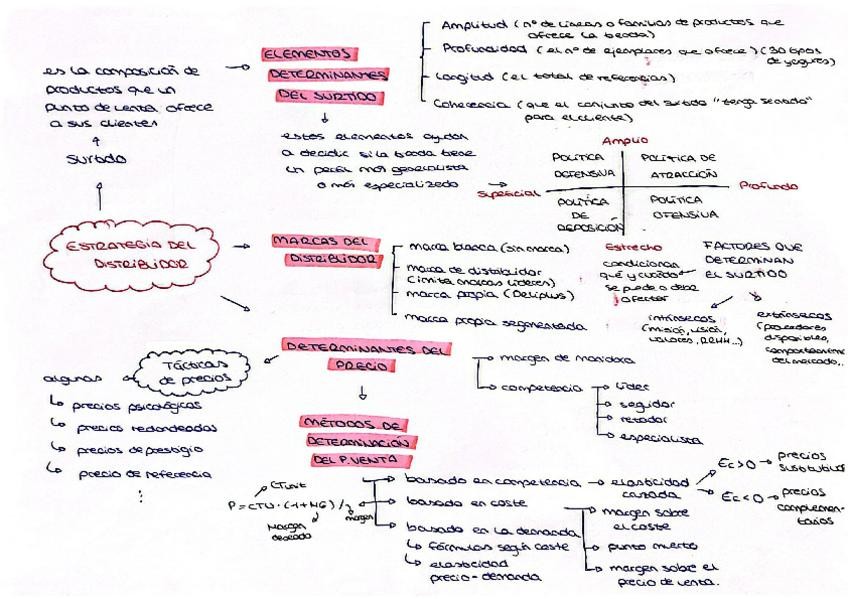 es la composición de
productos que un
punto de venta ofrece
a sus clientes
surtido
ESTRATEGIA DEL
DISTRIBUIDOR
ELEMENTOS
DETERMINANTES
DEL SURTIDO
Amplitud (nº de líneas o familias de productos que
ofrece la tienda)
Profundidad (el nº de ejemplares que ofrece) (30 tipos
de yogures)
Longitud (el total de referencias)
Coherencia (que el conjunto del surtido "tenga sentado"
para el cliente)
estos elementos ayudan
a decidir si la tienda tiene
un perfil más generalista
o más especializado
Amplio
POLÍTICA
DEFENSIVA
POLÍTICA DE
ATRACCIÓN
Superficial
Profundo
POLÍTICA
DE
DEPOSICIÓN
POLÍTICA
OFENSIVA
Estrecho
MARCAS DEL
DISTRIBUIDOR
marca blanca (sin marca)
marca de distribuidor
(imita marcas líderes)
marca propia (Deliplus)
marca propia segmentada
condicionan
qué y cuándo
se puede o debe
ofertar
FACTORES QUE
DETERMINAN
EL SURTIDO
intrínsecos
(misión, visión,
valores, RRHH...)
extrínsecos
(proveedores
disponibles,
comportamiento
del mercado..
DETERMINANTES DEL
PRECIO
margen de maniobra
competencia
líder
seguidor
retador
especialista
Tácticas
de precios
algunas
precios psicológicos
precios redondeados
precios de prestigio
precio de referencia
⋮
MÉTODOS DE
DETERMINACIÓN
DEL P.VENTA
CTunit
P=CTU·(1+MG)
Margen
deseado
margen
basado en competencia
elasticidad
cruzada
Ec>0 → precios
sustitutivos
Ec<0 → precios
complemen-
tarios
basado en coste
margen sobre
el coste
punto muerto
margen sobre el
precio de venta.
basado en la demanda
fórmulas según coste
elasticidad
precio-demanda